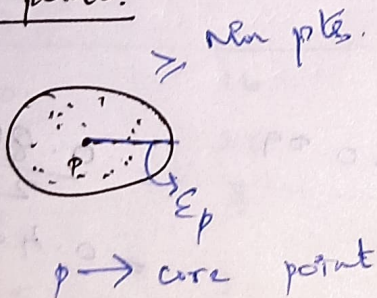 ≥ min pts.
p
εp
p → core point